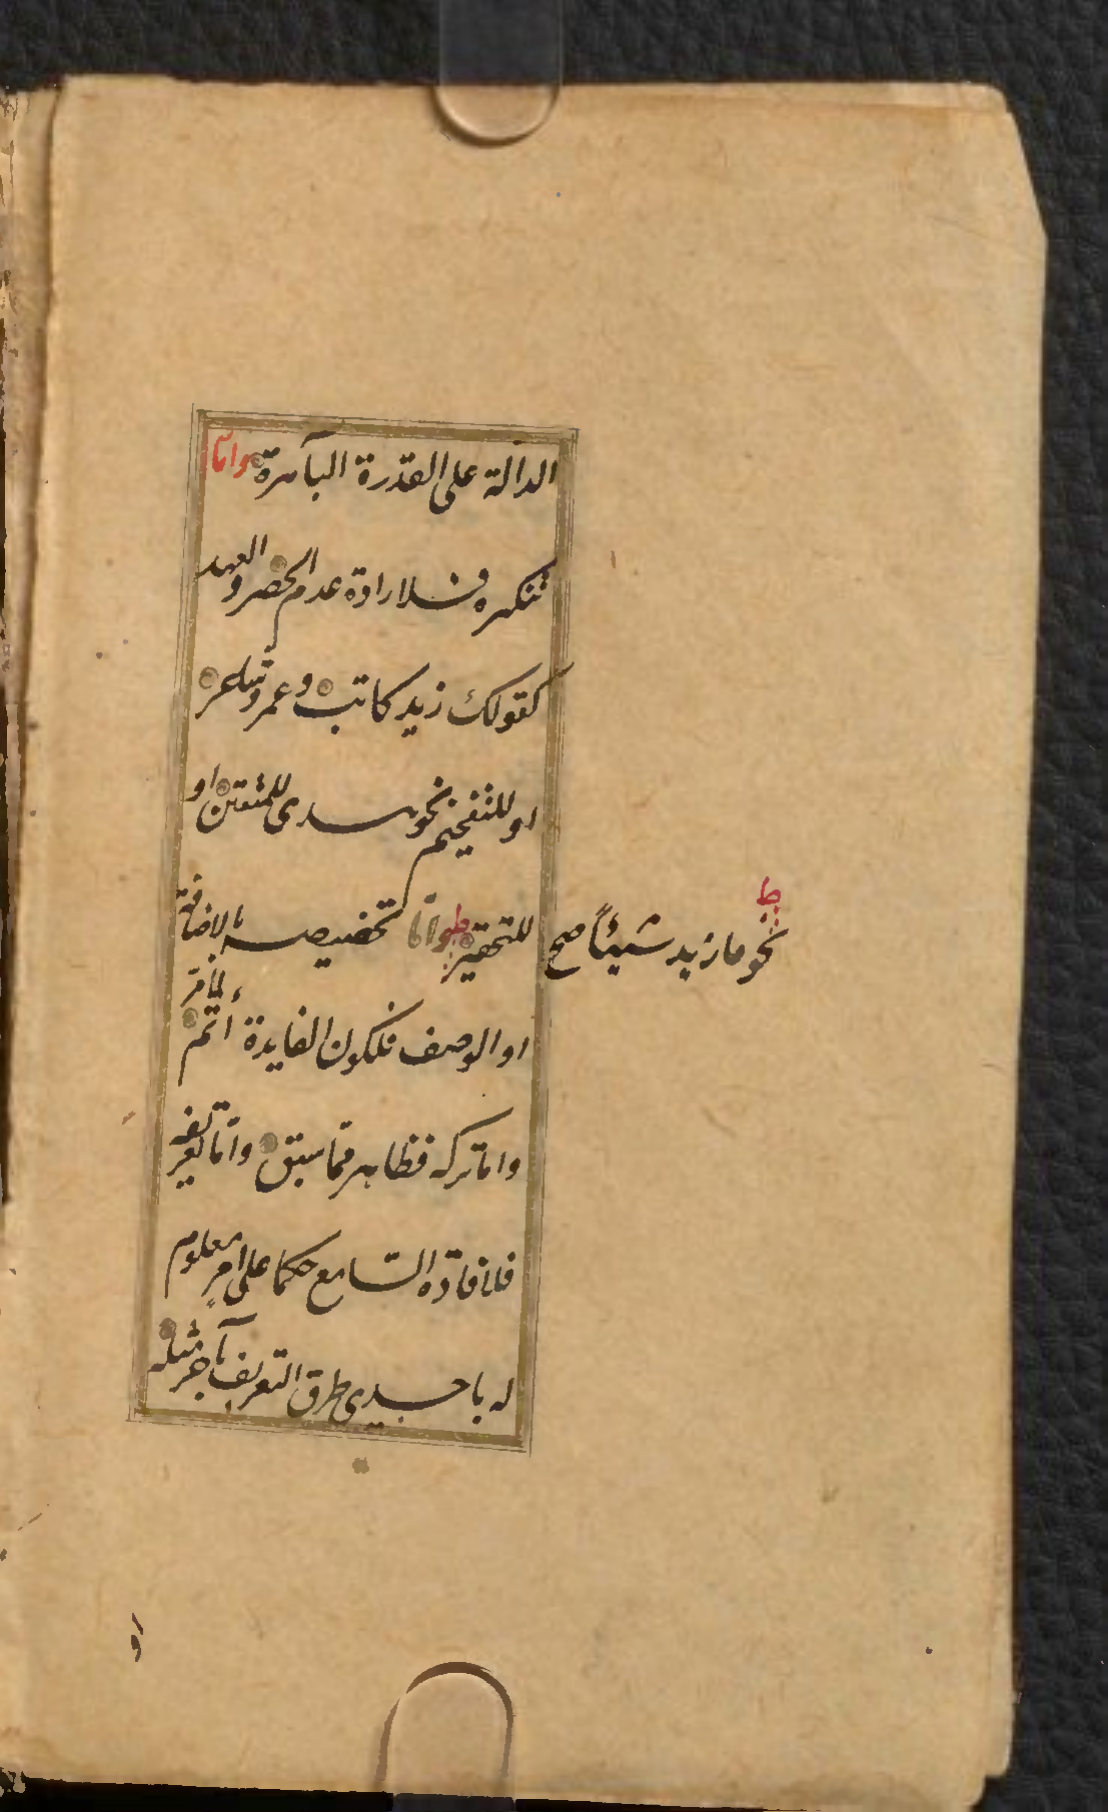 الدالة على القدرة الباهرة واما
تنكيره فلارادة عدم الحصر والعهد
كقولك زيد كاتب وعمرو شاعر
او للتفخيم نحو هدى للمتقين او
للتحقير واما تخصيصه بالاضافة
نحو ما زيد شيئاً صح
او الوصف فلكون الفايدة أتم لما مر
واما تركه فظاهر مما سبق واما تعريفه
فلافادة السامع حكما على امر معلوم
له باحدى طرق التعريف بآخر مثله
او